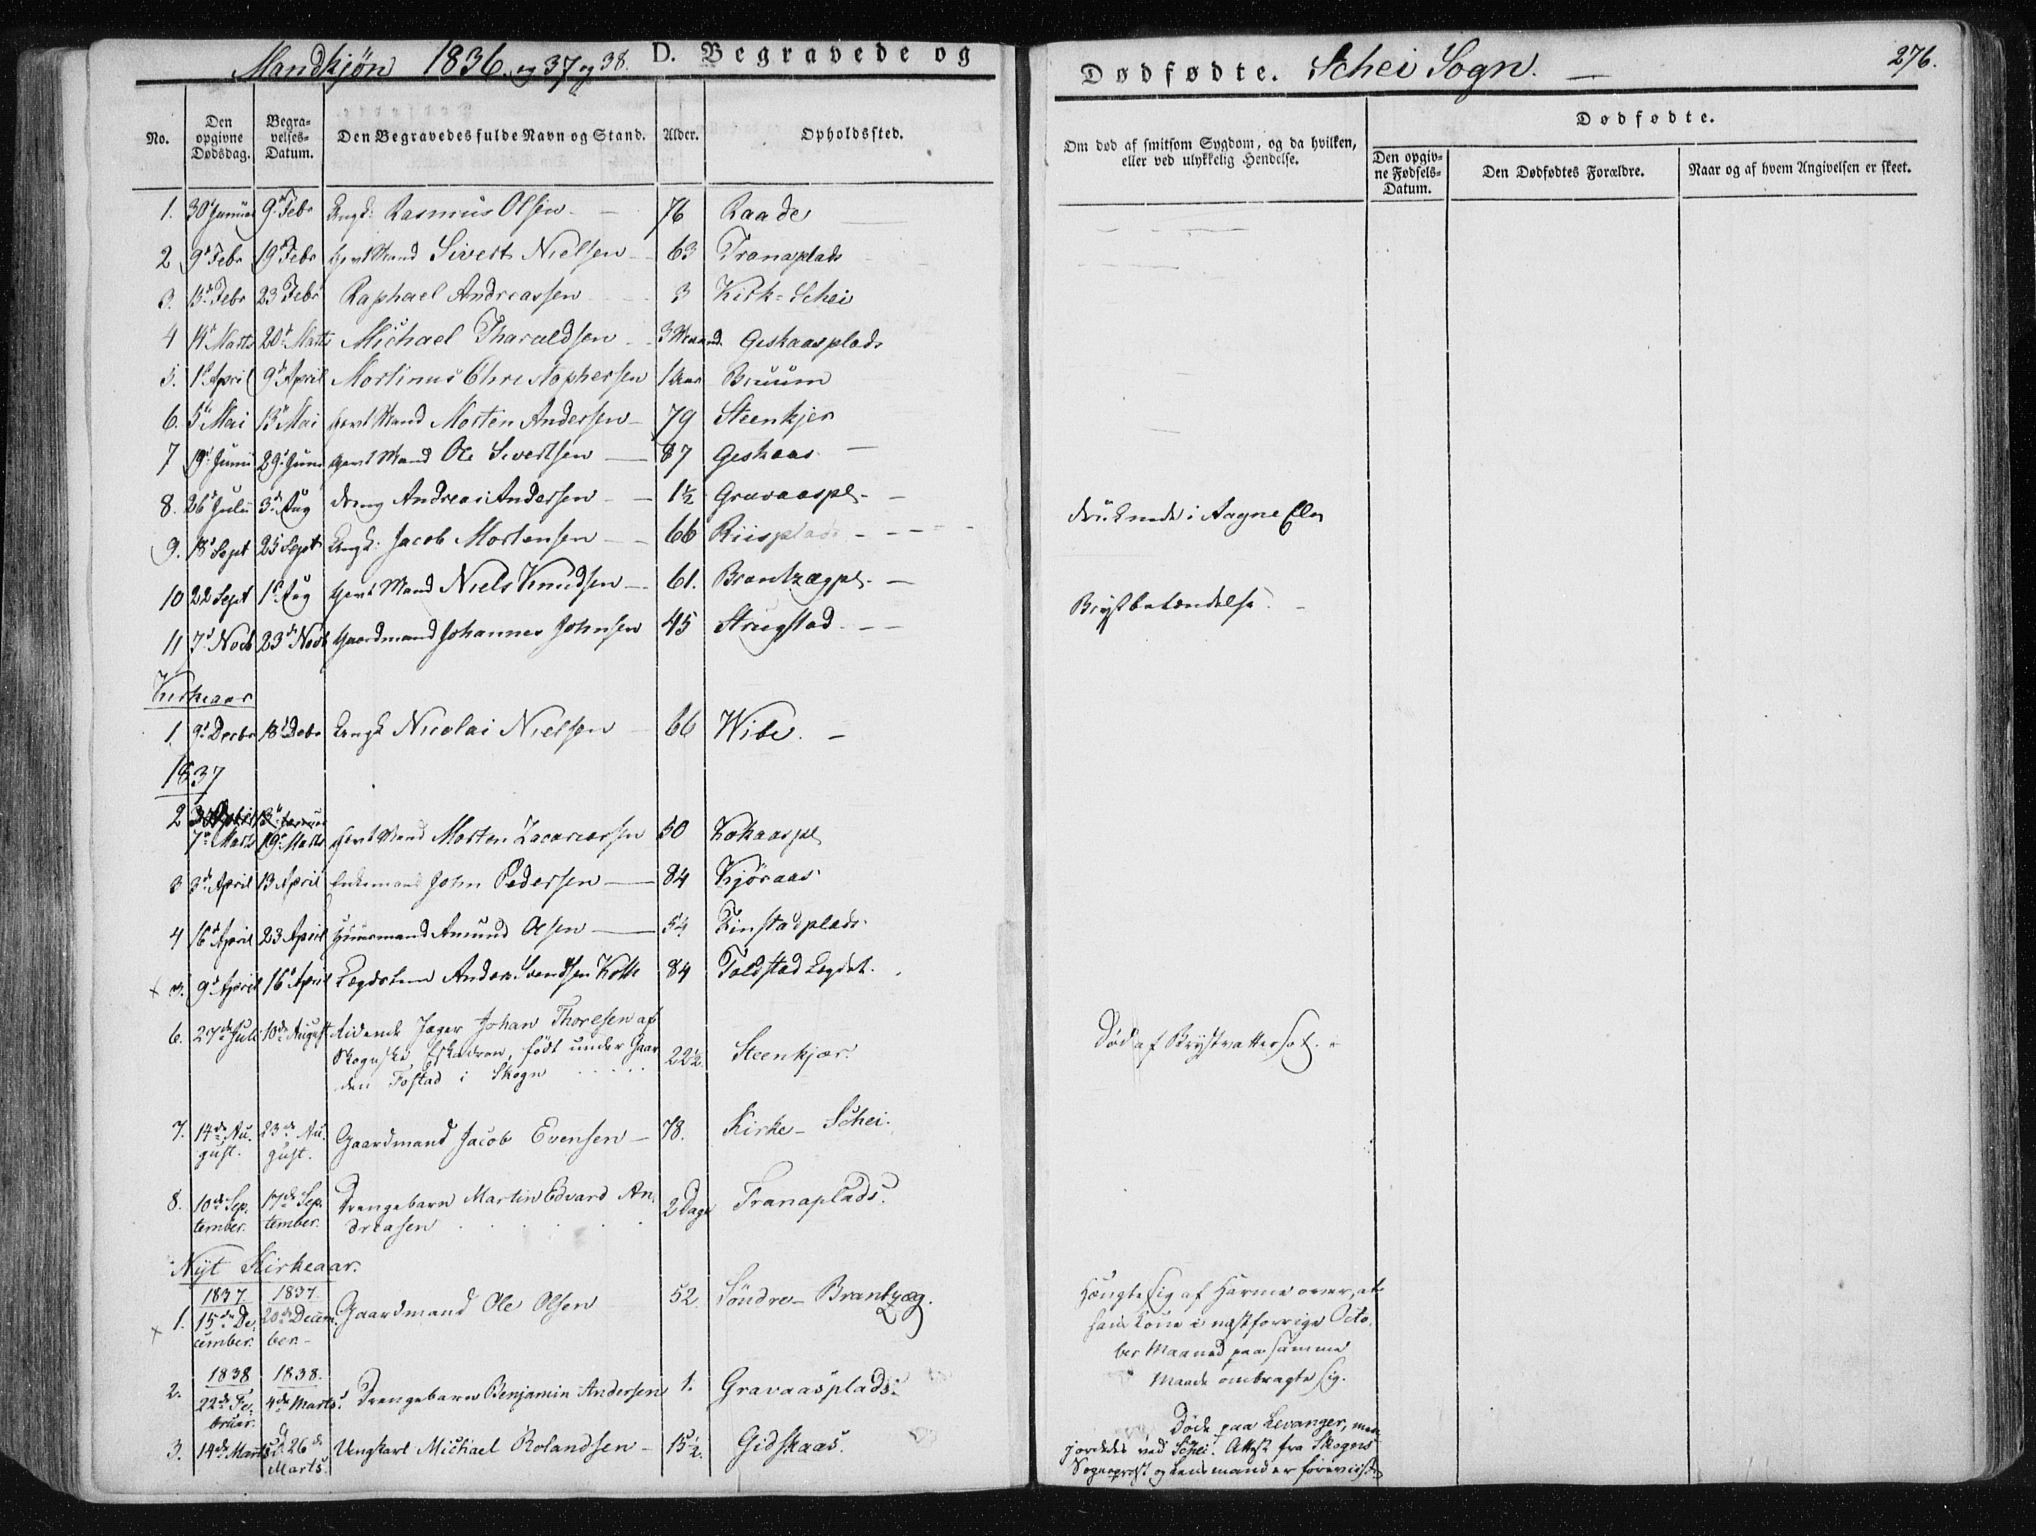 Mandkjøn 1836. og 37 og 38. D. Begravede og
Dødfødte. Schei Sogn. 276.
No.
Den opgivne Dødsdag.
Begravelses-Datum.
Den Begravedes fulde Navn og Stand.
Alder.
Opholdssted.
Om død af smitsom Sygdom, og da hvilken, eller ved ulykkelig Hendelse.
Dødfødte.
Den opgivne Fødsels-Datum.
Den Dødfødtes Forældre.
Naar og af hvem Angivelsen er skeet.
1. 30 Januar 9d Febr Ungk: Rasmus Olsen 76 Raade
2 9d Febr 19d Febr Mand Sivert Nielsen 63 Tranaplads
3. 13d Febr 23 Febr Raphael Andreassen 3 Kirk-Schei
4 14 Marts 20d Marts Michael Tharaldsen 3 Maaned Geskaasplads
5. 1d April 9d April Mortinus Christophersen 1 Aar Bruum
6. 5d Mai 13d Mai Mand Morten Andersen 79 Steenkjer
7 19d Junii 29d Juni Mand Ole Sivertsen 87 Geskaas
8. 26d Julii 3d Aug dreng Andreas Andersen 1½ Gravaaspl. druknede i Aagne Elv
9. 18d Sept 25 Sept Ungk: Jacob Mortensen 66 Riisplads
10 22 Sept 1d Aug Mand Niels Knudsen 61. Brantzægpl.
11 7d Novb 23d Novb Gaardmand Johannes Johnsen 45 Strugstad Brystbetændelse.
Kirkeaar
1. 9d Decbr 18d Debr Ungk Nicolai Nielsen 66 Wibe.
1837
2 7d Marts 19d Marts Mand Morten Zacariassen 50 Kokaaspl
3 3d April 13 April Enkemand John Pedersen 84 Kjøraas
4 16d April 23 April Huusmand Amund Olsen 54 Finstadplads
9d April 16d April Lægdslem Anders Svendsen 84 Toldstad Lægdet.
6. 27de Juli 10de August Ridende Jæger Johan Thoresen af
Skognske Eskadron, født under Gaar
den Fostad i Skogn 22½. Steenkjær. Død af Brystvattersot.
7. 14de August. 23de August. Gaardmand Jacob Evensen 78. Kirke-Schei.
8. 10de September. 17de September. Drengebarn Martin Edvard An
dreasen 2 Dage Tranaplads.
Nyt Kirkeaar.
1837. 1837.
1. 15de December. 20de December. Gaardmand Ole Olsen 52. Søndre-Brantzæg. Hængte sig af Harme over, at
hans Kone i næstforrige Octo
ber Maaned paa samme
Maade ombragte sig.
1838 1838.
2. 22de Februar. 4de Marts. Drengebarn Benjamin Andersen 1. Gravaasplads.
3. 14de Marts d. 26de Marts. Ungkarl Michael Rolandsen 15½. Gidskaas. Døde paa Levanger, men
jordedes ved Schei. Attest fra Skogns
Sogneprest og Lensmand er foreviist